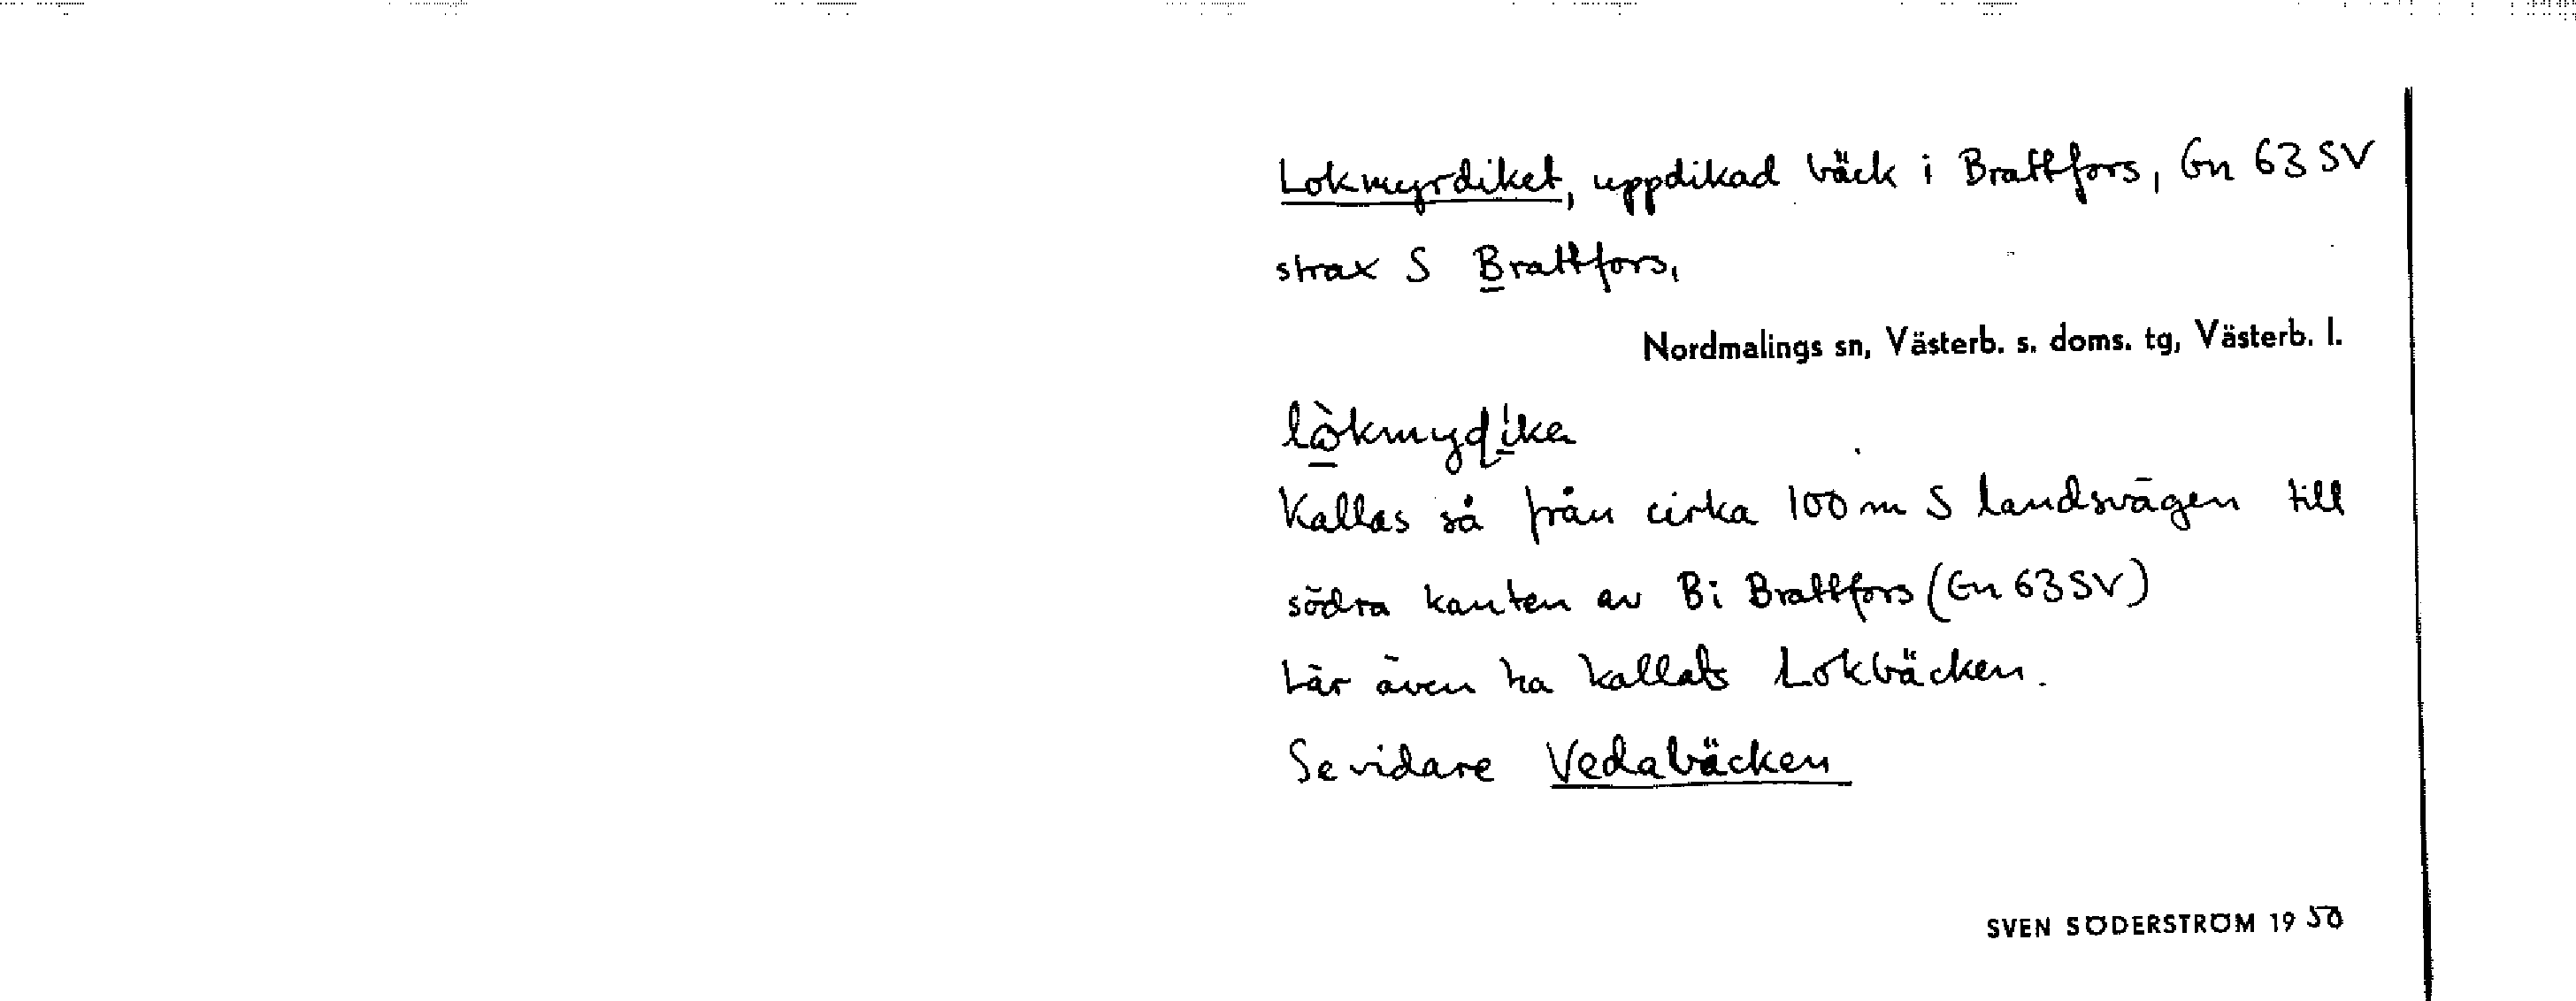 Lokmyrdiket, uppdikad bäck i Brattfors, Gn 63 SV
strax S Brattfors,
Nordmalings sn, Västerb. s. doms. tg, Västerb. l.
Kallas så från cirka 100 m S landsvägen till
södra kanten av Bi Brattfors (Gn 63 SV)
Lär även ha kallats Lokbäcken.
Se vidare Vedabäcken
SVEN SÖDERSTRÖM 19 50